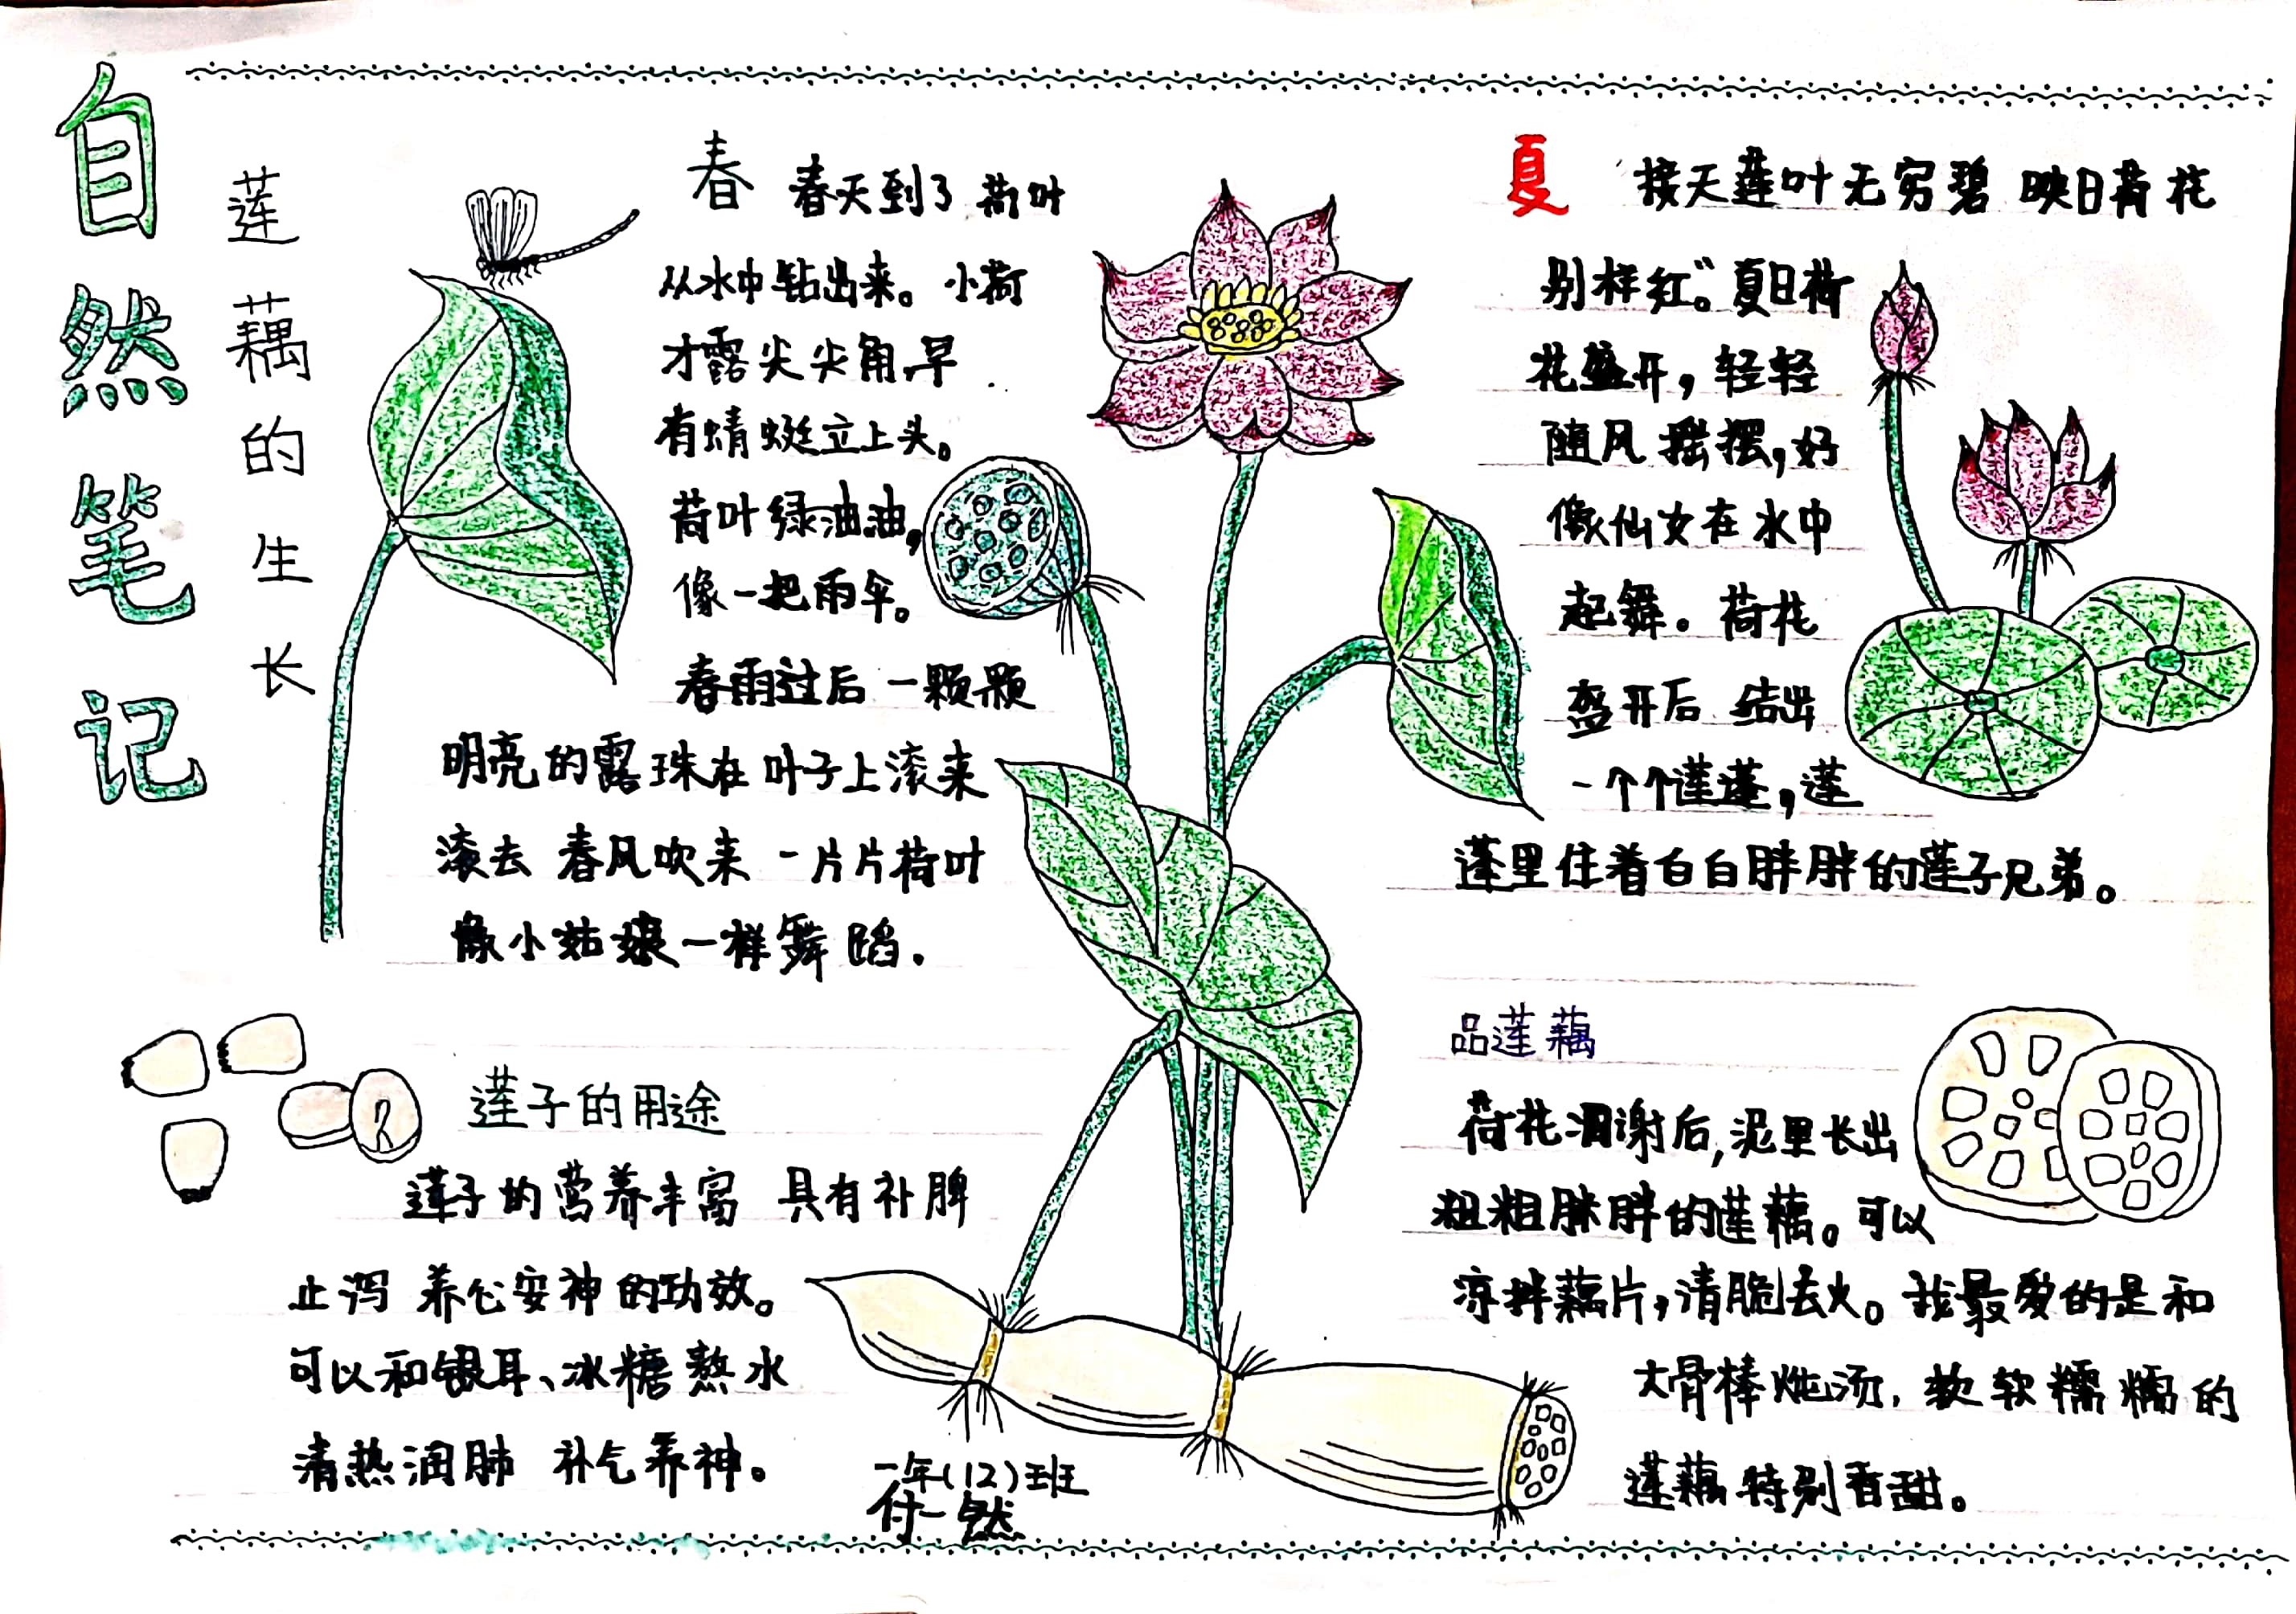 自然笔记
莲藕的生长
春 春天到了 荷叶
从水中钻出来。小荷
才露尖尖角,早
有蜻蜓立上头。
荷叶绿油油,
像一把雨伞。
春雨过后 一颗颗
明亮的露珠在叶子上滚来
滚去 春风吹来 一片片荷叶
像小姑娘一样舞蹈.
夏 接天莲叶无穷碧 映日荷花
别样红。”夏日荷
花盛开,轻轻
随风摇摆,好
像仙女在水中
起舞。荷花
盛开后 结出
一个个莲蓬,莲
蓬里住着白白胖胖的莲子兄弟。
莲子的用途
莲子的营养丰富 具有补脾
止泻 养心安神的功效。
可以和银耳、冰糖熬水
清热润肺 补气养神。
品莲藕
荷花凋谢后,泥里长出
粗粗胖胖的莲藕。可以
凉拌藕片,清脆去火。我最爱的是和
大骨棒炖汤,软软糯糯的
莲藕特别香甜。
一年(12)班
付一然